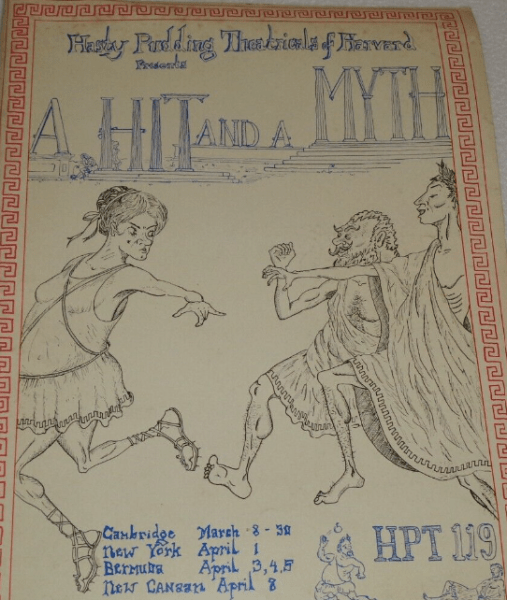 Hasty Pudding Theatricals of Harvard
Presents
A HIT AND A MYTH
Cambridge March 8 - 30
New York April 1
Bermuda April 3,4,5
New Canaan April 8
HPT 119